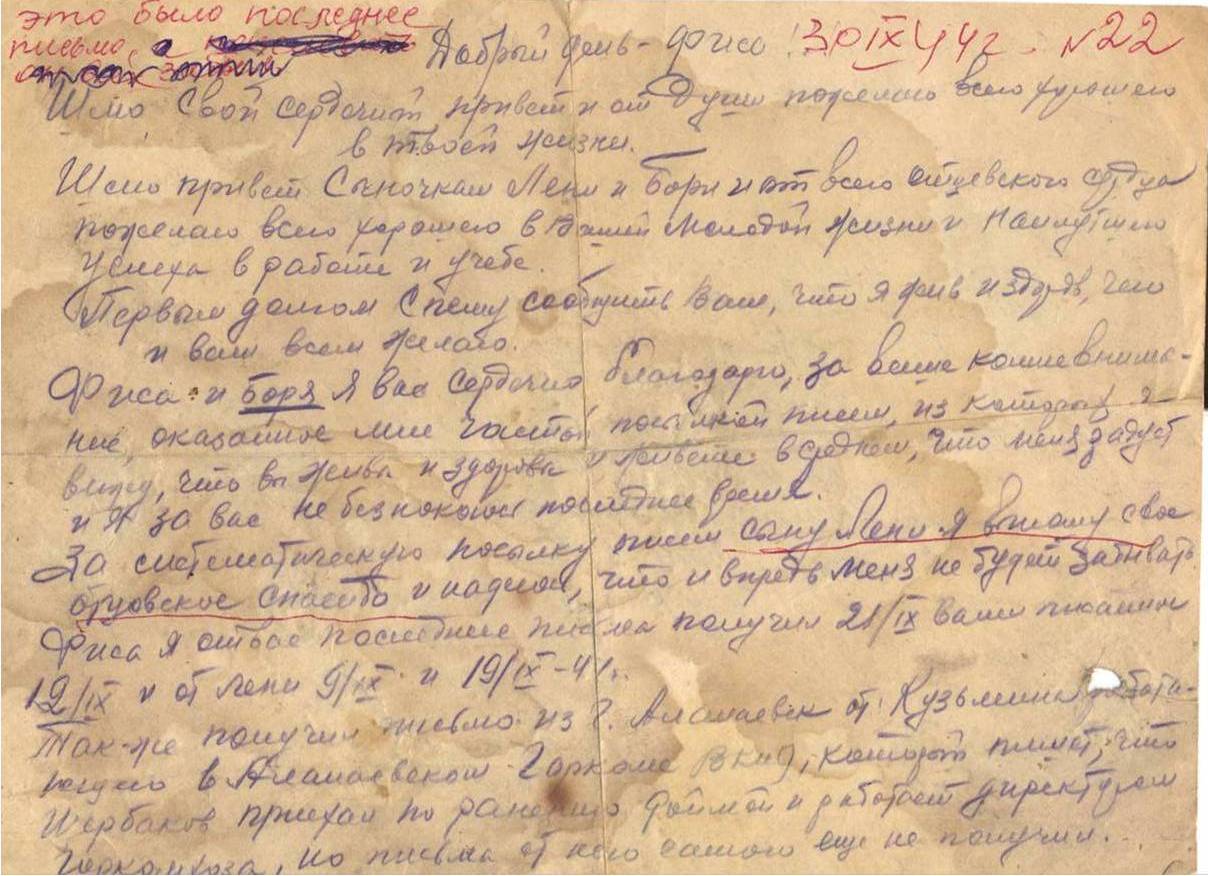 это было последнее
письмо, а
Добрый день - Фиса! 30 IX 44 г. N 22
Шлю свой сердечный привет и от души пожелаю всего хорошего
в твоей жизни.
Шлю привет Сыночкам Лени и Бори и от всего отцевского сердца
пожелаю всего хорошего в вашей молодой жизни и наилутшего
успеха в работе и учебе.
Первым долгом спешу сообщить вам, что я жив и здоров, чего
и вам всем желаю.
Фиса и Боря я вас сердечно благодарю, за ваше внима-
ние, оказанное мне частой посылкой писем, из которых я
вижу, что вы живы и здоровы и живете в среднем, что меня радует
и я за вас не безпокоюсь последнее время.
За систематическую посылку писем сыну Лени я выношу свое
отцовское спасибо и надеюсь, что и впредь меня не будет забывать.
Фиса я от вас последние письма получил 21/IX ваши писанные
12/IX и от Лени 9/IX и 19/IX-41г.
Так-же получил письмо из г. Алапаевск от Кузьмина работа-
ющего в Алапаевском Горкоме ВКП(б), который пишет, что
Щербаков приехал по ранению домой и работает директором
Горкомхоза, но письма от него самого еще не получил...